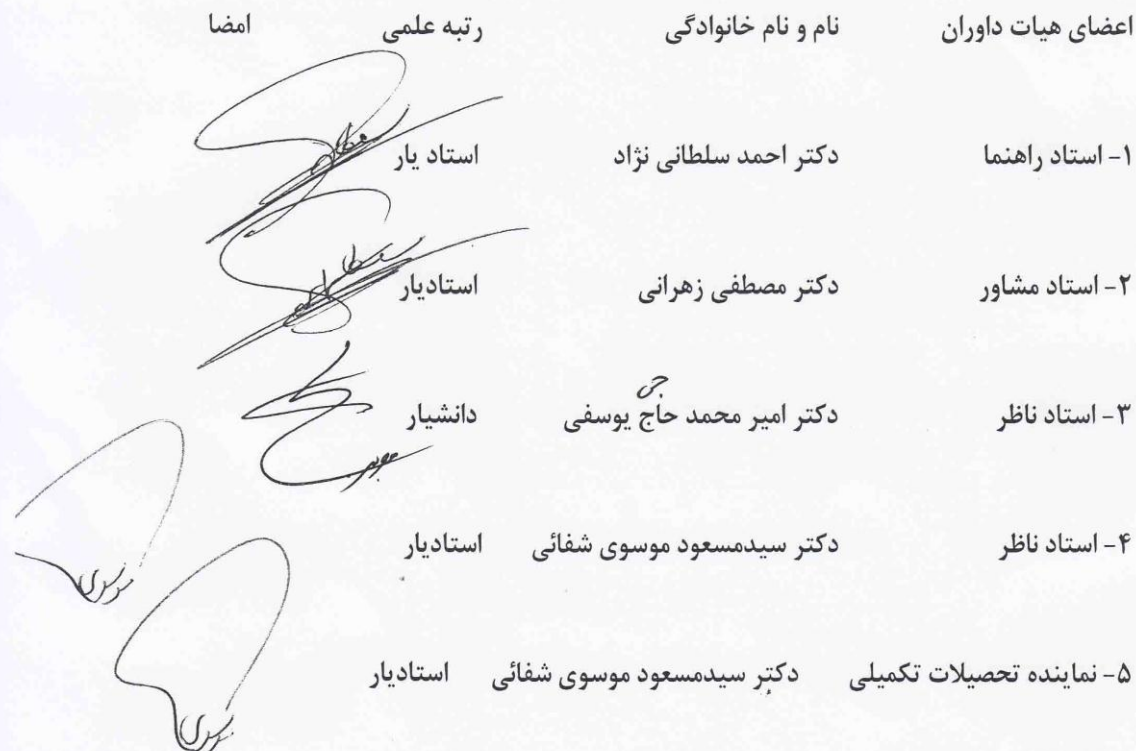 اعضای هیات داوران نام و نام خانوادگی رتبه علمی امضا
۱- استاد راهنما دکتر احمد سلطانی نژاد استاد یار
۲- استاد مشاور دکتر مصطفی زهرانی استادیار
جی
۳- استاد ناظر دکتر امیر محمد حاج یوسفی دانشیار
۴- استاد ناظر دکتر سیدمسعود موسوی شفائی استادیار
۵- نماینده تحصیلات تکمیلی دکتر سیدمسعود موسوی شفائی استادیار